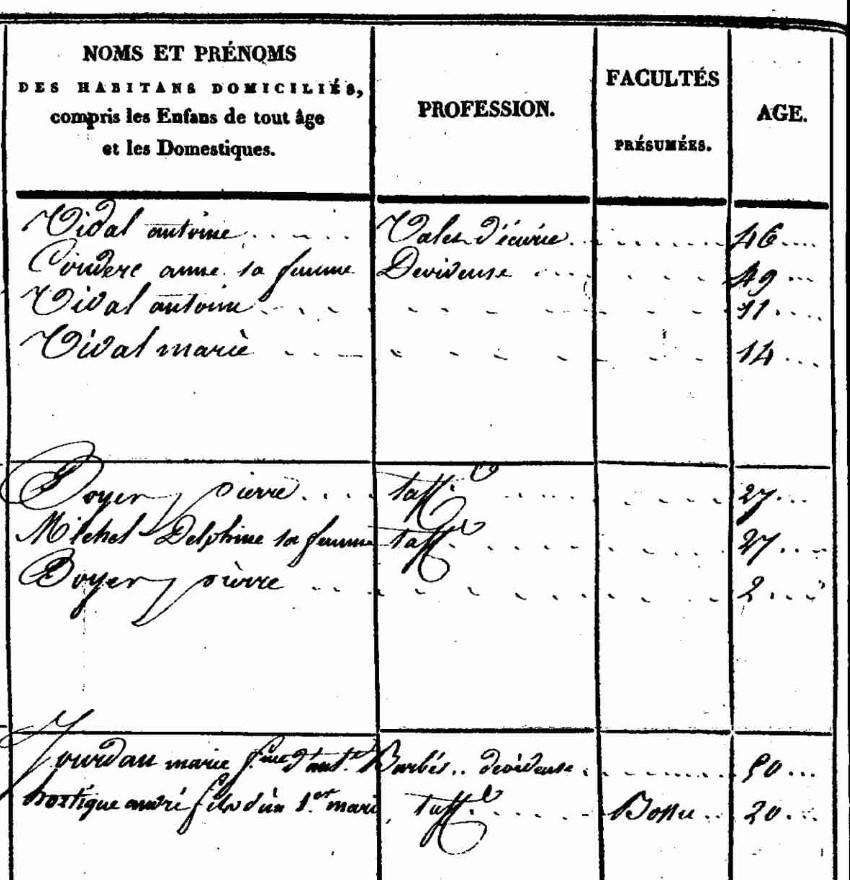 NOMS ET PRÉNOMS
DES HABITANS DOMICILIÉS,
compris les Enfans de tout âge
et les Domestiques.
PROFESSION.
FACULTÉS
PRÉSUMÉES.
AGE.
Vidal antoine Valet d'écurie 46
Couderc anne sa femme Devideuse 49
Vidal antoine 11
Vidal marie 14
Boyer pierre taff.re 27
Michel Delphine sa femme taff.re 27
Boyer pierre 2
Jourdan marie f.me d'ant.e Barbés.. devideuse 50
andré fils d'un 1.er mari taff.re Bossu 20